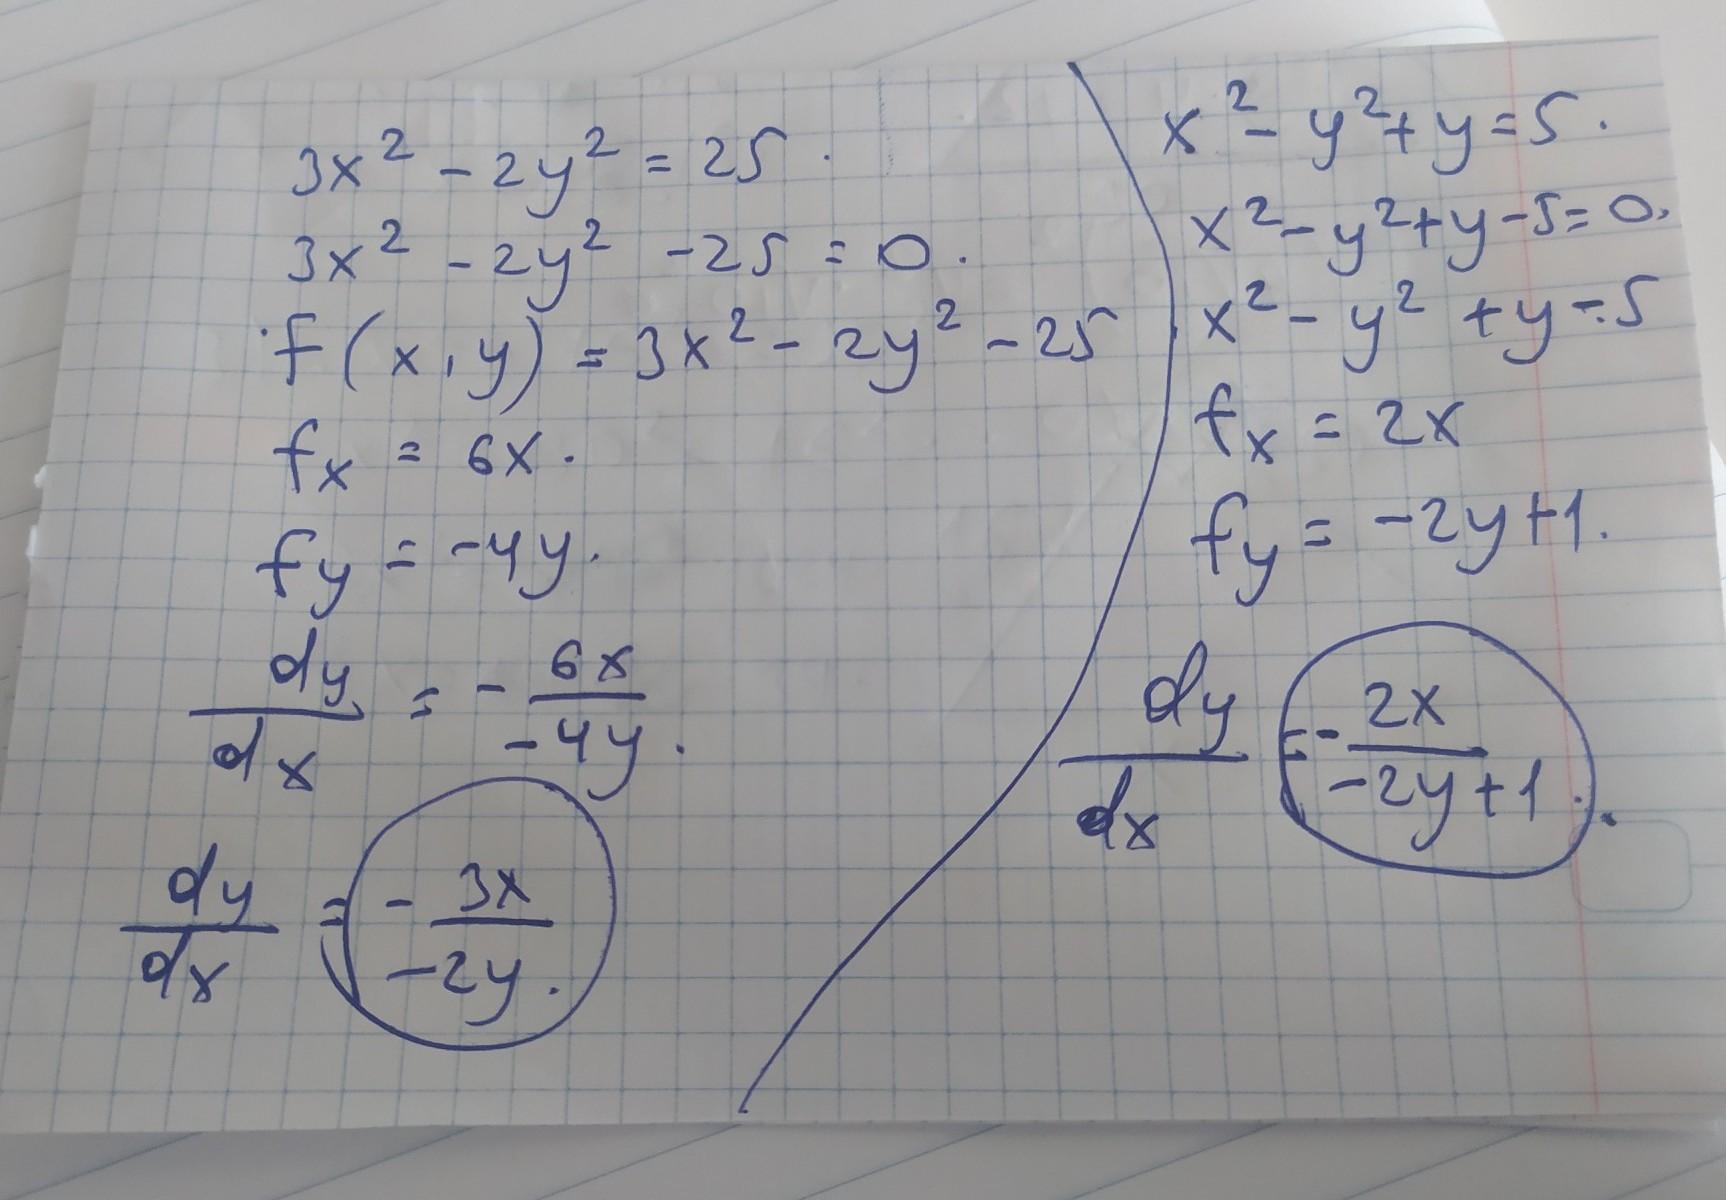 3x² - 2y² = 25.
3x² - 2y² - 25 = 0.
f(x,y) = 3x² - 2y² - 25
fx = 6x.
fy = -4y.
dy/dx = - 6x/-4y.
dy/dx = - 3x/-2y.
x² - y² + y = 5.
x² - y² + y - 5 = 0.
x² - y² + y - 5
fx = 2x
fy = -2y+1.
dy/dx = - 2x/-2y+1.